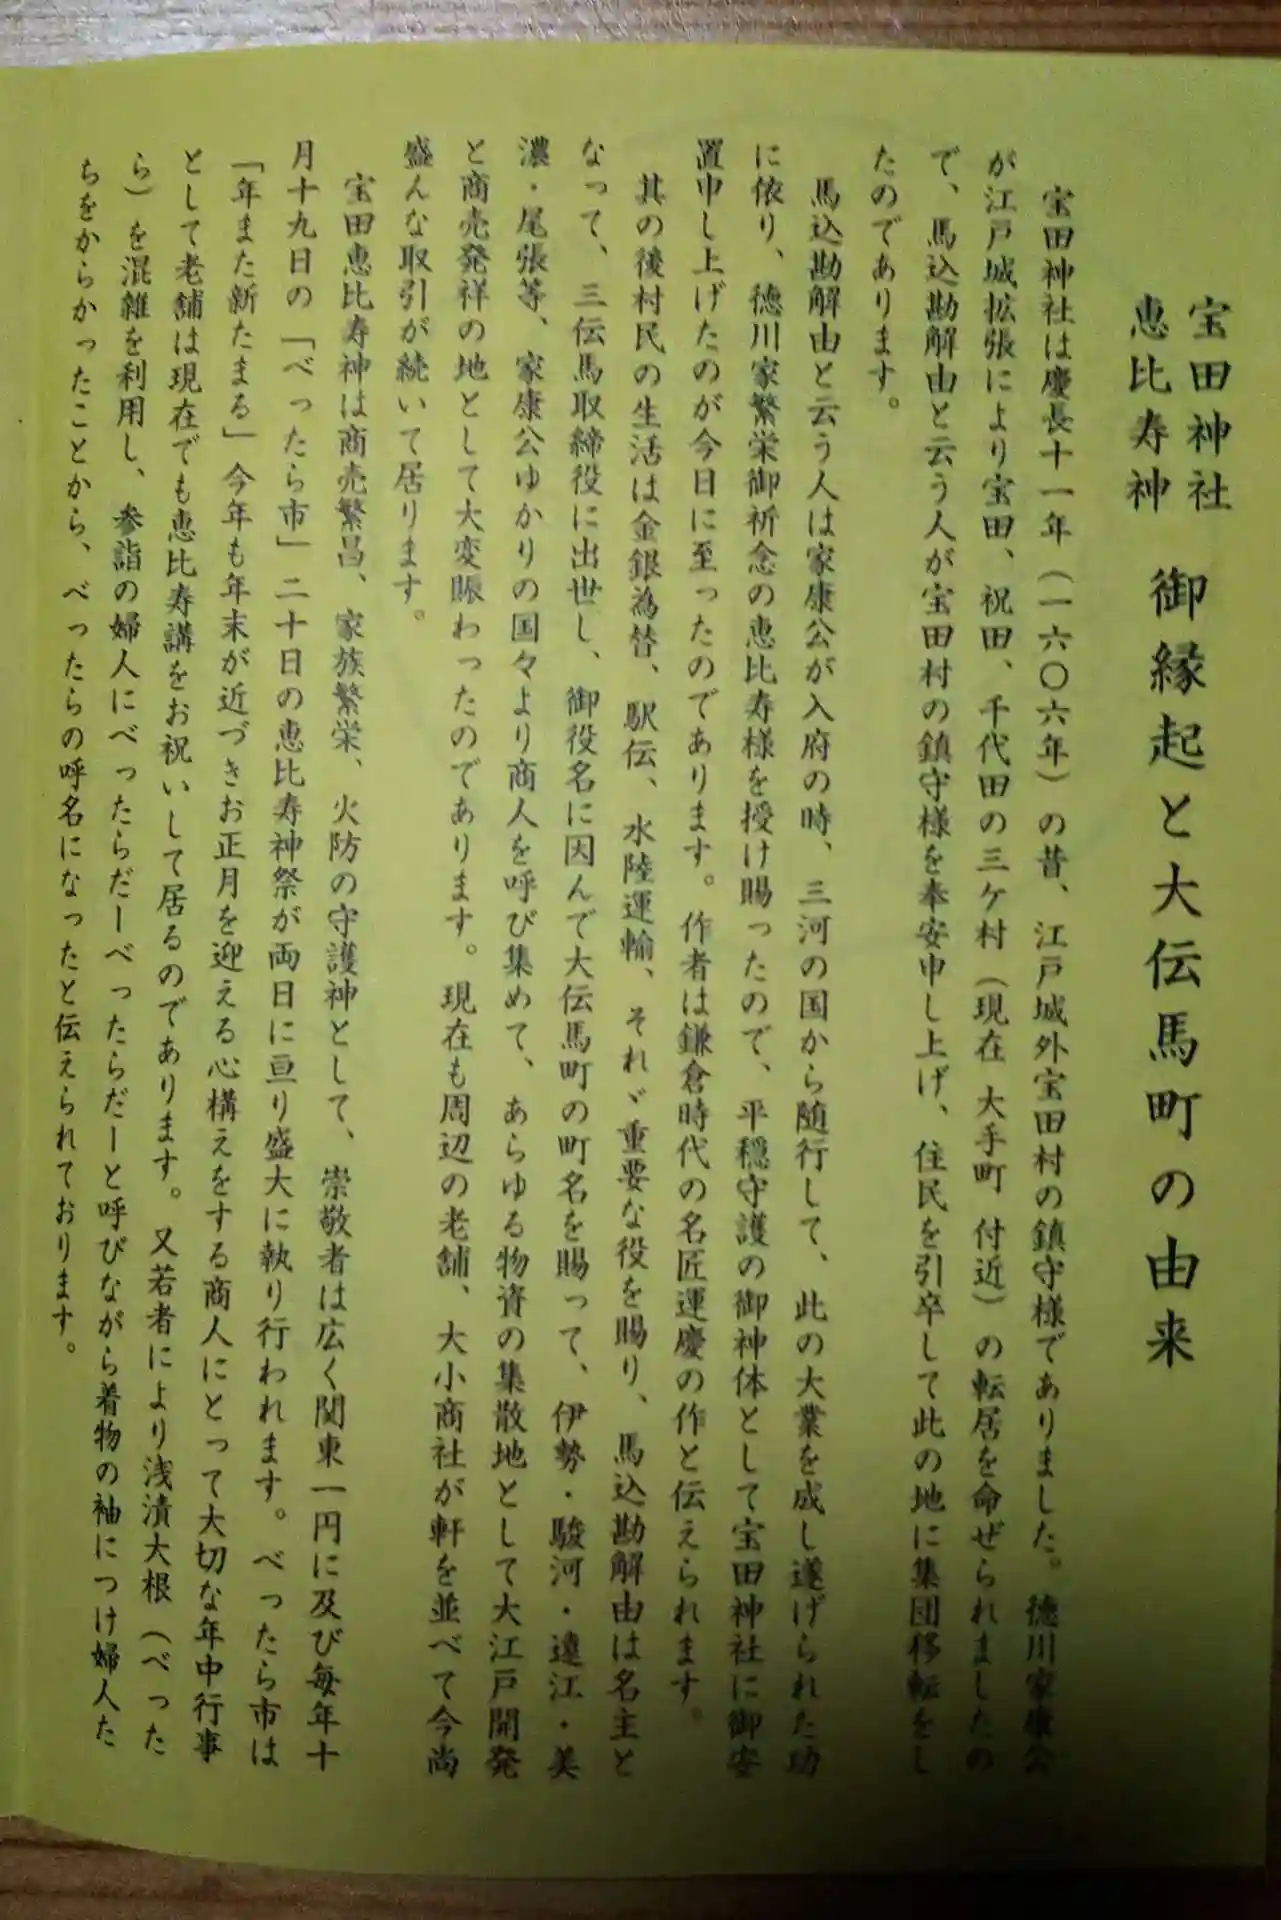 宝田神社
恵比寿神
御縁起と大伝馬町の由来
宝田神社は慶長十一年（一六〇六年）の昔、江戸城外宝田村の鎮守様でありました。徳川家康公
が江戸城拡張により宝田、祝田、千代田の三ケ村（現在 大手町 付近）の転居を命ぜられましたの
で、馬込勘解由と云う人が宝田村の鎮守様を奉安申し上げ、住民を引卒して此の地に集団移転をし
たのであります。
馬込勘解由と云う人は家康公が入府の時、三河の国から随行して、此の大業を成し遂げられた功
に依り、徳川家繁栄御祈念の恵比寿様を授け賜ったので、平穏守護の御神体として宝田神社に御安
置申し上げたのが今日に至ったのであります。作者は鎌倉時代の名匠運慶の作と伝えられます。
其の後村民の生活は金銀為替、駅伝、水陸運輸、それゞ重要な役を賜り、馬込勘解由は名主と
なって、三伝馬取締役に出世し、御役名に因んで大伝馬町の町名を賜って、伊勢・駿河・遠江・美
濃・尾張等、家康公ゆかりの国々より商人を呼び集めて、あらゆる物資の集散地として大江戸開発
と商売発祥の地として大変賑わったのであります。現在も周辺の老舗、大小商社が軒を並べて今尚
盛んな取引が続いて居ります。
宝田恵比寿神は商売繁昌、家族繁栄、火防の守護神として、崇敬者は広く関東一円に及び毎年十
月十九日の「べったら市」二十日の恵比寿神祭が両日に亘り盛大に執り行われます。べったら市は
「年また新たまる」今年も年末が近づきお正月を迎える心構えをする商人にとって大切な年中行事
として老舗は現在でも恵比寿講をお祝いして居るのであります。又若者により浅漬大根（べった
ら）を混雑を利用し、参詣の婦人にべったらだーべったらだーと呼びながら着物の袖につけ婦人た
ちをからかったことから、べったらの呼名になったと伝えられております。